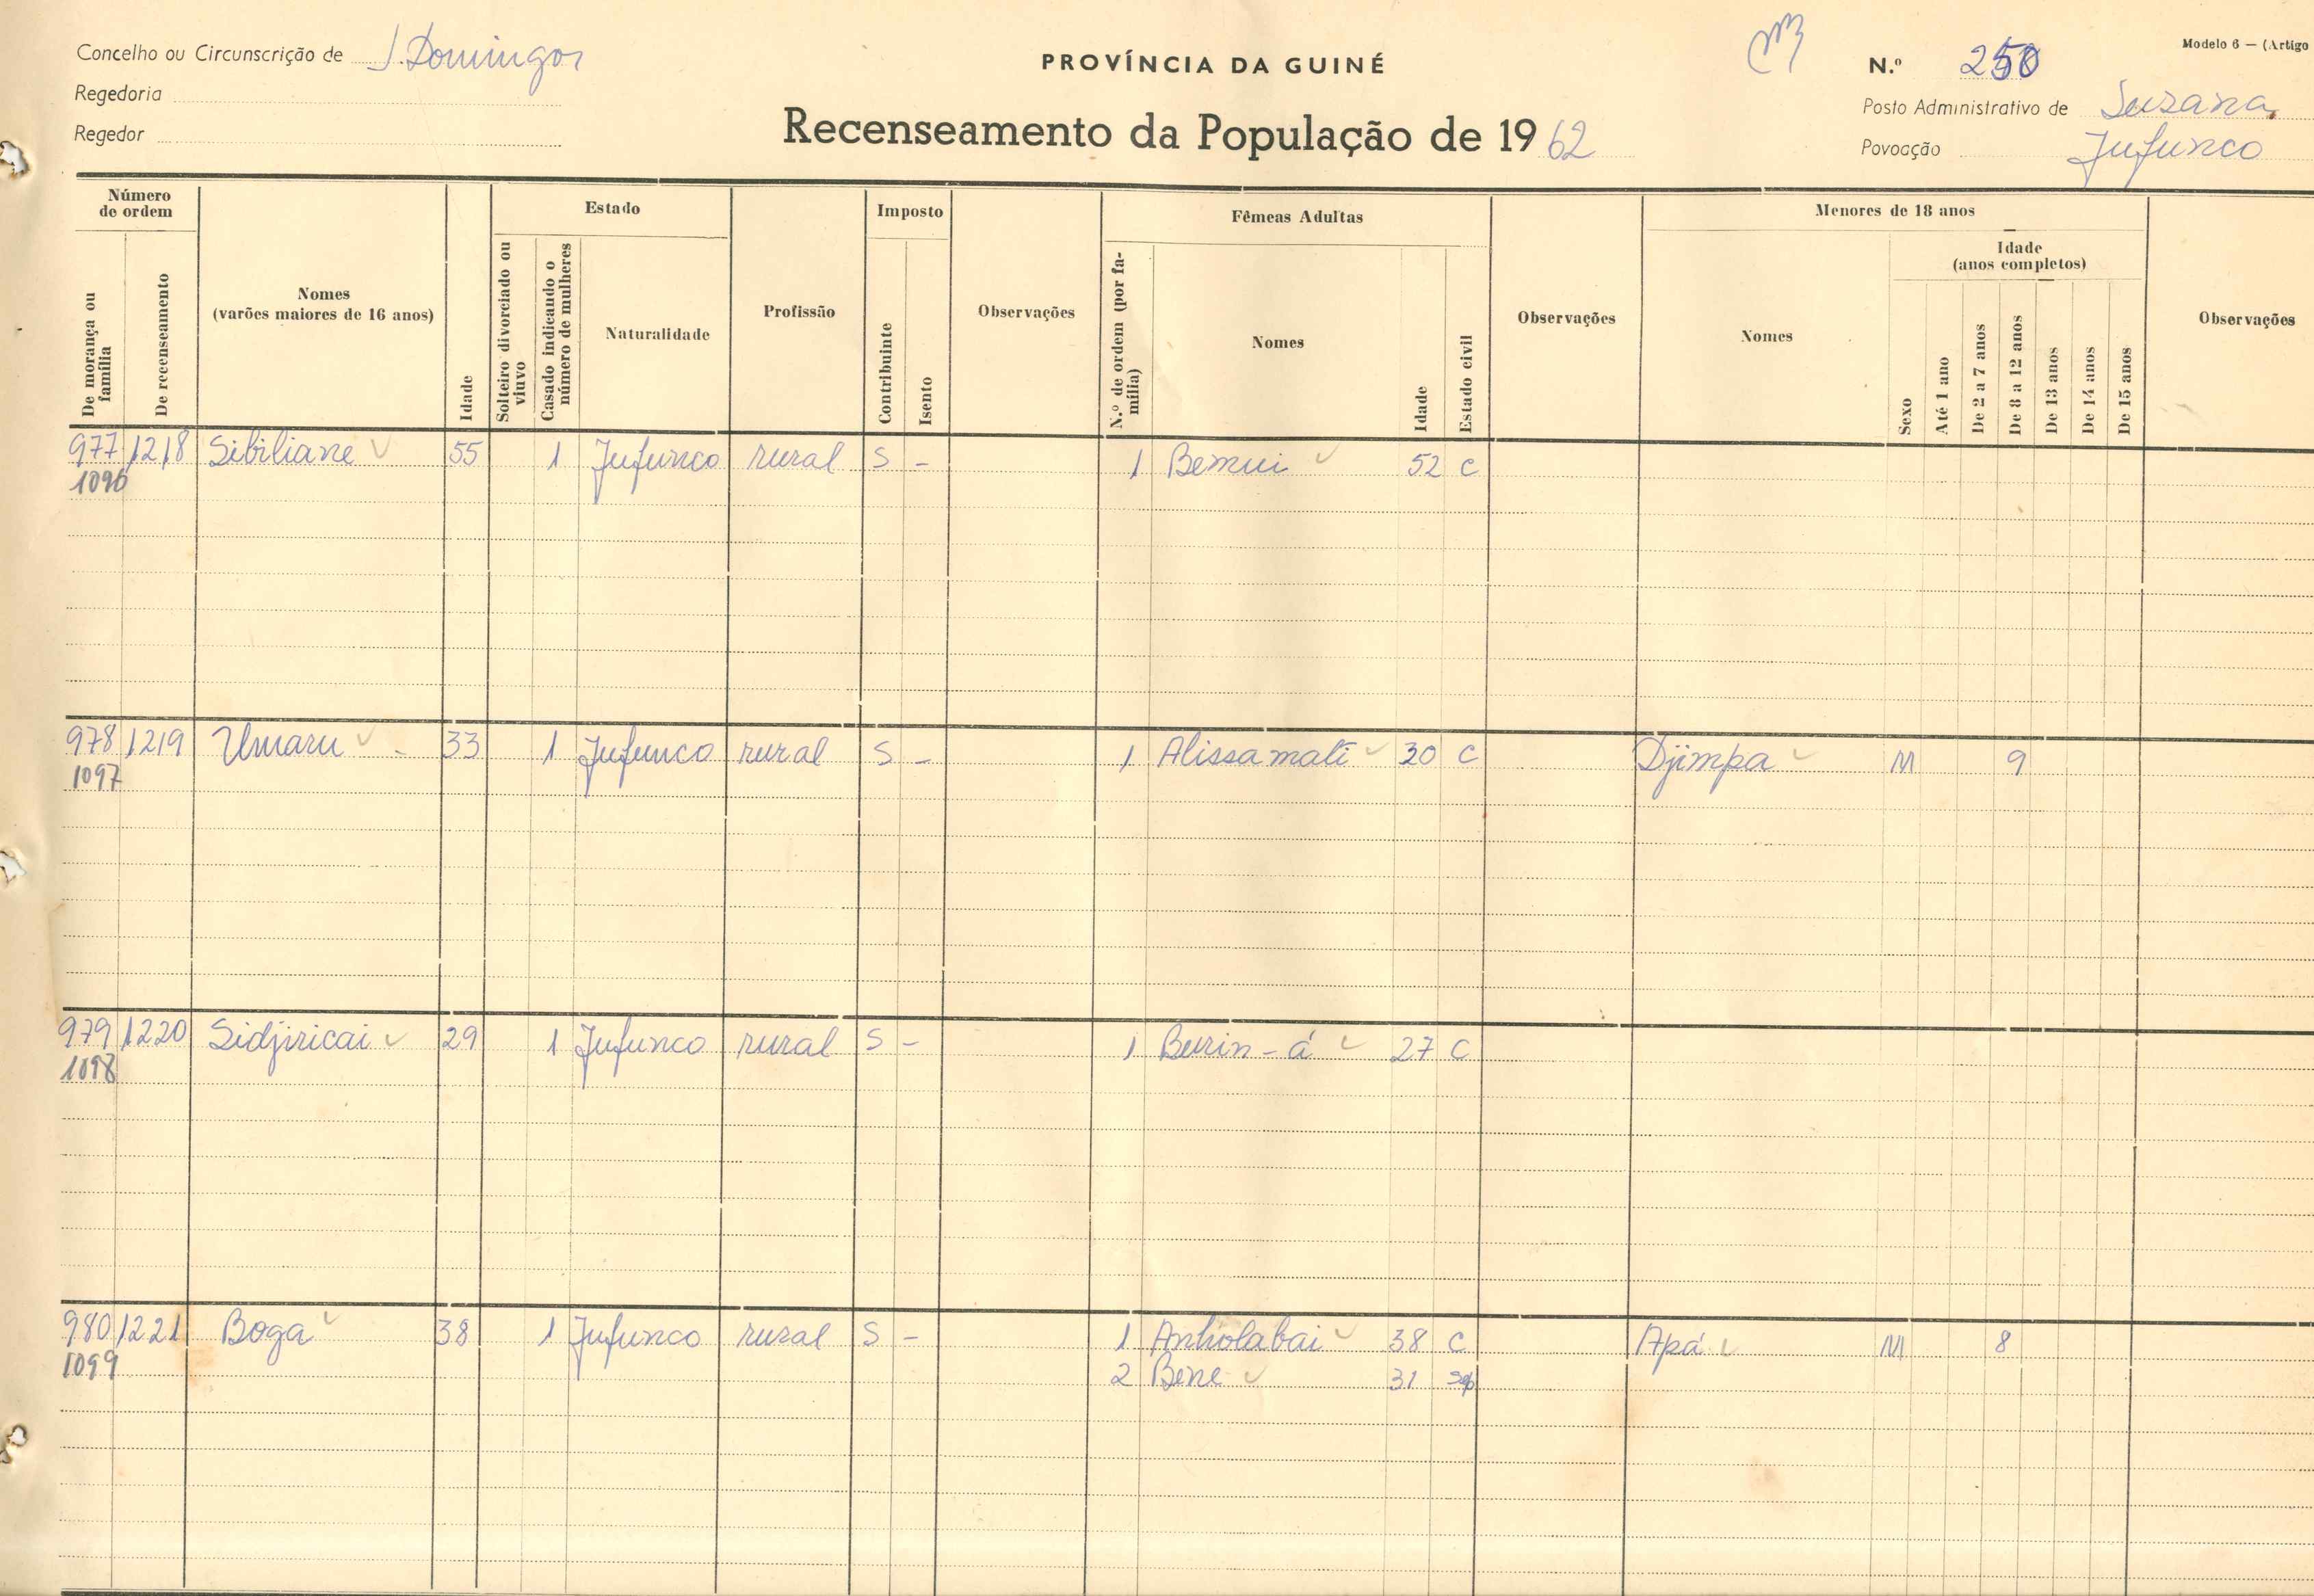 Concelho ou Circunscrição de S. Domingos
Regedoria
Regedor
PROVÍNCIA DA GUINÉ
Recenseamento da População de 1962
Modelo 6 — (Artigo
N.º 250
Posto Administrativo de Suzana
Povoação Jufunco
Número de ordem
De morança ou família
De recenseamento
Nomes
(varões maiores de 16 anos)
Idade
Estado
Solteiro divorciado ou viuvo
Casado indicando o número de mulheres
Naturalidade
Profissão
Imposto
Contribuinte
Isento
Observações
Fêmeas Adultas
N.º de ordem (por família)
Nomes
Idade
Estado civil
Observações
Menores de 18 anos
Nomes
Sexo
Idade
(anos completos)
Até 1 ano
De 2 a 7 anos
De 8 a 12 anos
De 13 anos
De 14 anos
De 15 anos
Observações
977 1218 Sibiliane 55 1 Jufunco rural S - 1 Bemui 52 C
1096
978 1219 Umaru - 33 1 Jufunco rural S - 1 Alissa mati 30 C Djimpa M 9
1097
979 1220 Sidjiricai 29 1 Jufunco rural S - 1 Burin-á 27 C
1098
980 1221 Boga 38 1 Jufunco rural S - 1 Anholabai 38 C Apá M 8
1099 2 Bene 31